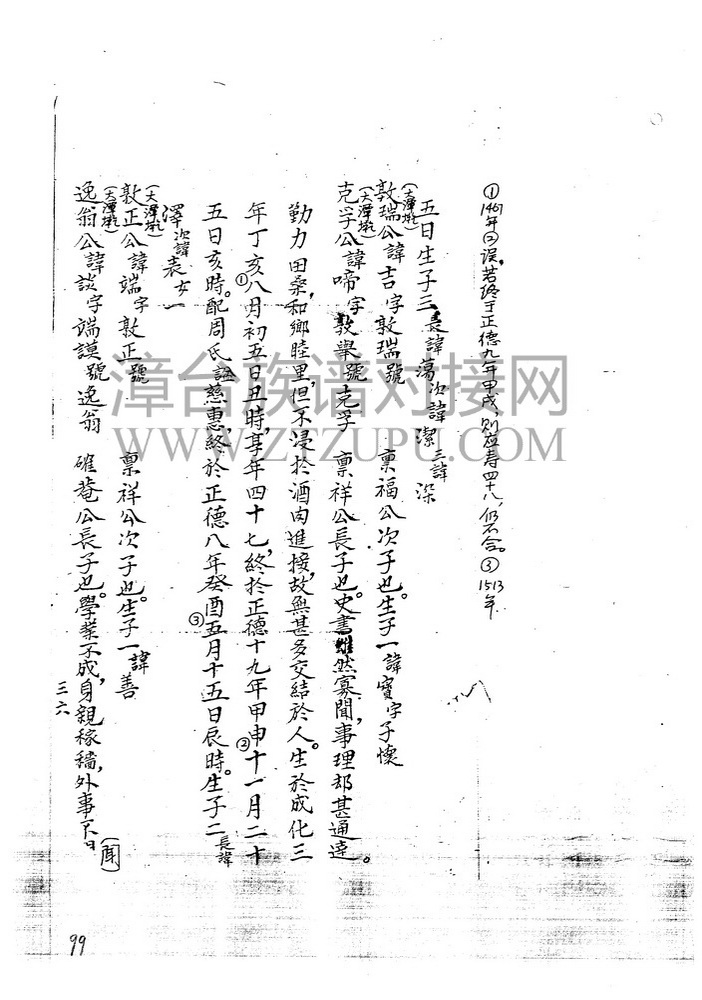 ①1467年②误,若终于正德九年甲戌,则应寿四十八,仍不合。③1513年
五日生子三長諱蕩次諱潔三諱深
(大潭墘)敦瑞公諱吉字敦瑞號 禀福公次子也。生子一諱寶字子懷
(大潭墘)克孚公諱啼字敦舉號克孚 禀祥公長子也。史書雖然寡聞,事理却甚通達。
勤力田桑,和鄉睦里,但不浸於酒肉進接,故無甚多交結於人。生於成化三
年丁亥①八月初五日丑時,享年四十七,終於正德十九年甲申②十一月二十
五日亥時。配周氏諡慈惠,終於正德八年癸酉③五月十五日辰時。生子二長諱
澤次諱表女一
(大潭墘)敦正公諱端字敦正號 禀祥公次子也。生子一諱善
(大潭墘)逸翁公諱談字端謨號逸翁 確菴公長子也。學業不成,身親稼穡,外事不日(聞)
三六
99
漳台族谱对接网
WWW.ZTZUPU.COM